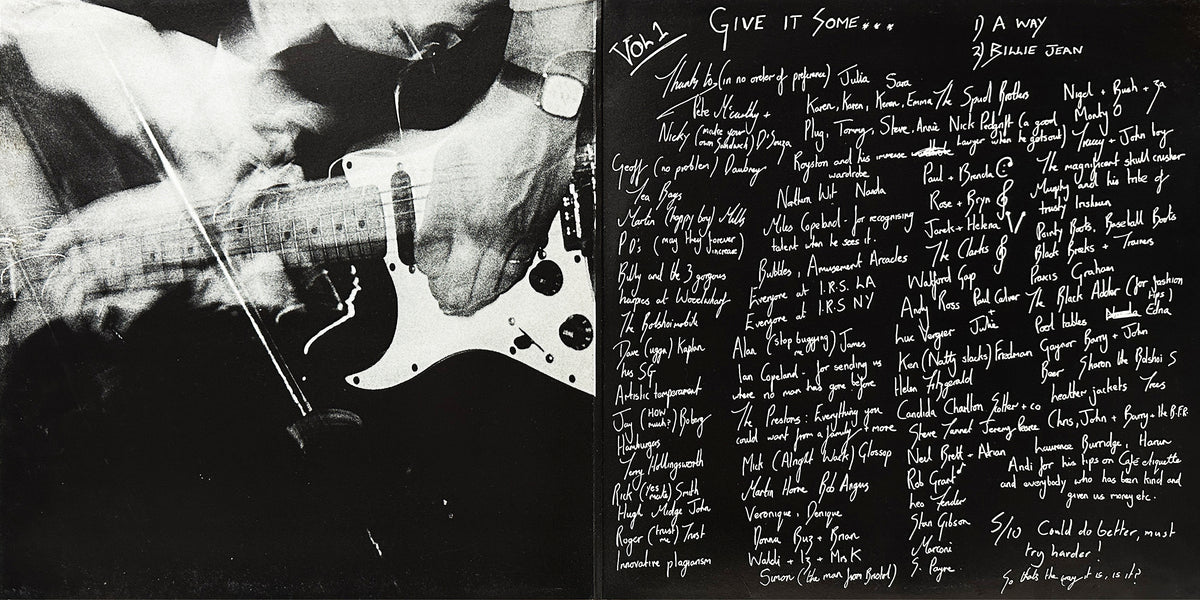 Vol 1
GIVE IT SOME...
1) A WAY
2) BILLIE JEAN
Thanks to (in no order of preference) Julia Sara
Pete McCarthy +
Nicky (make your own sandwich) D'Souza
Geoff (no problem) Daubney
Tea Bags
Martin (happy boy) Mills
P.D's (may they forever increase)
Billy and the 3 gorgous
harpies at Woodwharf
The Bolshoimobile
Dave (ugga) Kaplan
his SG
Artistic temperament
Jay (HOW much?) Boberg
Hamburgers
Terry Hollingsworth
Rick (yes mate) Smith
Hugh Midge John
Roger (trust me) Trust
Innovative plagiarism
Karen, Karen, Keran, Emma The Spud Brothers
Plug, Tommy, Steve, Annie Nick Pedgrift (a good
lawyer when he gets out)
Royston and his immense
wardrobe
Northern Wit Nanda
Miles Copeland - for recognising
talent when he sees it.
Bubbles, Amusement Arcades
Everyone at I.R.S. LA
Everyone at I.R.S NY
Alan (stop bugging me) James
Ian Copeland - for sending us
where no man has gone before
The Prestons: Everything you
could want from a family + more
Mick (Alright Wack) Glossop
Martin Horne Bob Angus
Veronique, Denique
Donna Buz + Brian
Waldi + Iz + Mrs K
Simon (the man from Bristol)
Paul + Brenda
Rose + Bryn
Janet + Helena
The Clarks
Watford Gap
Andy Ross Paul Calver
Luc Vergier + Julie
Ken (Natty slacks) Friedman
Helen Fitzgerald
Candida Charlton Sotter + co
Steve Tannet Jeremy Pearce
Neil Brett + Adrian
Rob Grant
Leo Fender
Stan Gibson
Marconi
S. Payne
Nigel + Bush + 3a
Monty O
Tracey + John boy
The magnificent skull crusher
Murphy and his tribe of
trusty Irishmen
Pointy Boots, Baseball Boots
Black Breeks + Trainers
Praxis Graham
The Black Adder (for fashion tips)
Pool tables Edna
Gaynor Barry + John
Beer Sharon the Bolshoi S
leather jackets Trees
Chris, John + Barry + the B.F.R.
Laurence Burridge, Harun
Andi for his tips on Café etiquette
and everybody who has been kind and
given us money etc.
5/10 Could do better, must
try harder!
So thats the way it is, is it?